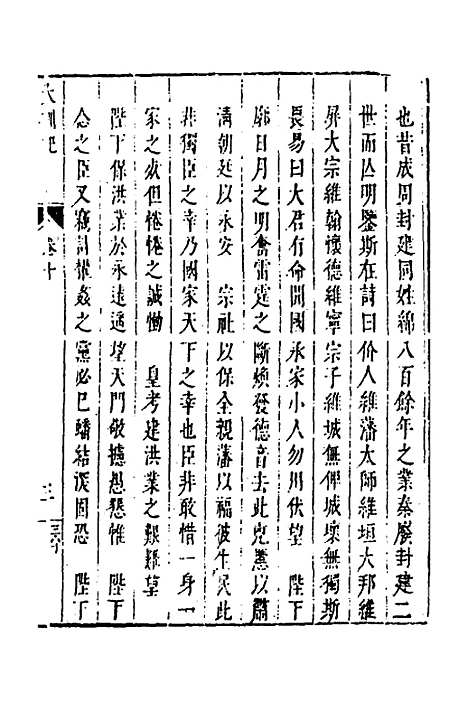 也昔成周封建同姓綿八百餘年之業秦廢封建二
世而亡明鑒斯在詩曰价人維藩大師維垣大邦維
屏大宗維翰懷德維寧宗子維城無俾城壞無獨斯
畏易曰大君有命開國承家小人勿用伏望　陛下
廓日月之明奮雷霆之斷煥發德音去此兇惡以肅
清朝廷以永安　宗社以保全親藩以福彼生民此
非獨臣之幸乃國家天下之幸也臣非敢惜一身一
家之故但惓惓之誠慟　皇考建洪業之艱難望
陛下保洪業於永遠遙望天門敬攄愚懸惟　陛下
念之臣又竊計權姦之黨必已蟠結深固恐　陛下
大訓記
卷十
三